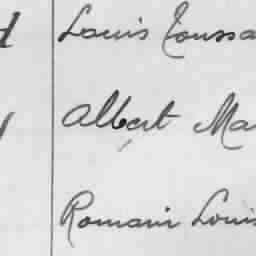 Louis Toussa
Albert Ma
Romain Louis